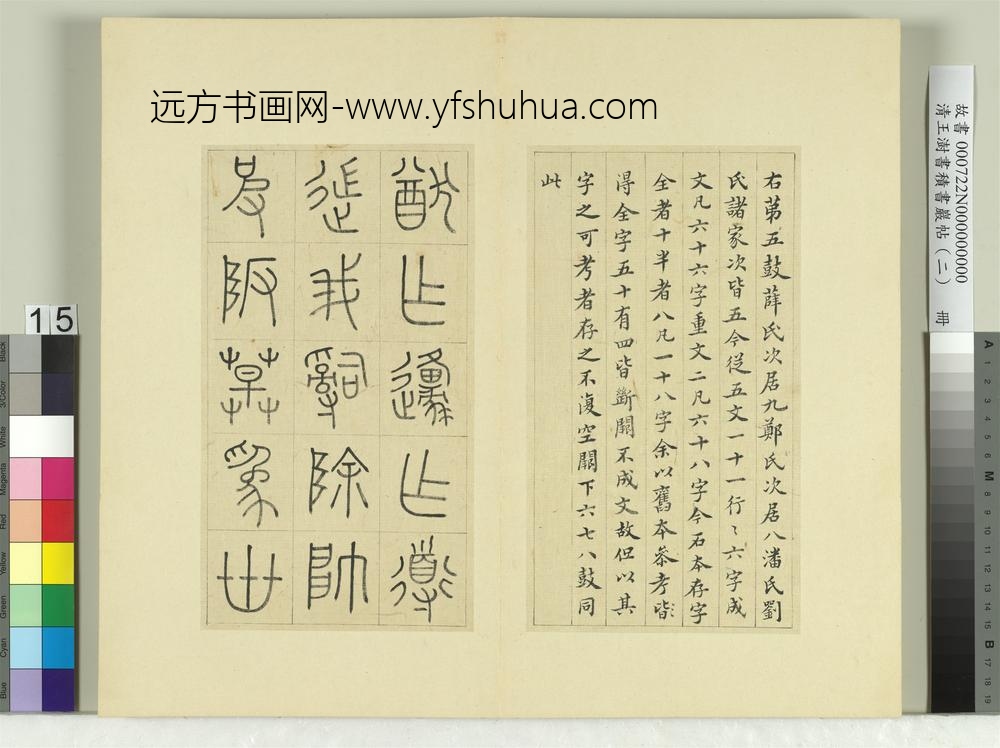 远方书画网-www.yfshuhua.com
右第五鼓薛氏次居九鄭氏次居八潘氏劉
氏諸家次皆五今從五文一十一行〻六字成
文凡六十六字重文二凡六十八字今石本存字
全者十半者八凡一十八字余以舊本叅考皆
得全字五十有四皆斷闕不成文故但以其
字之可考者存之不復空闕下六七八鼓同
此
猷乍邍乍導
我辭除帥
阪草為世
故書 000722N000000000
清王澍書積書巖帖(二) 冊
15
Black
3/Color
White
Magenta
Red
Yellow
Green
Cyan
Blue
A
1
2
3
4
5
6
M
8
9
10
11
12
13
14
15
B
17
18
19